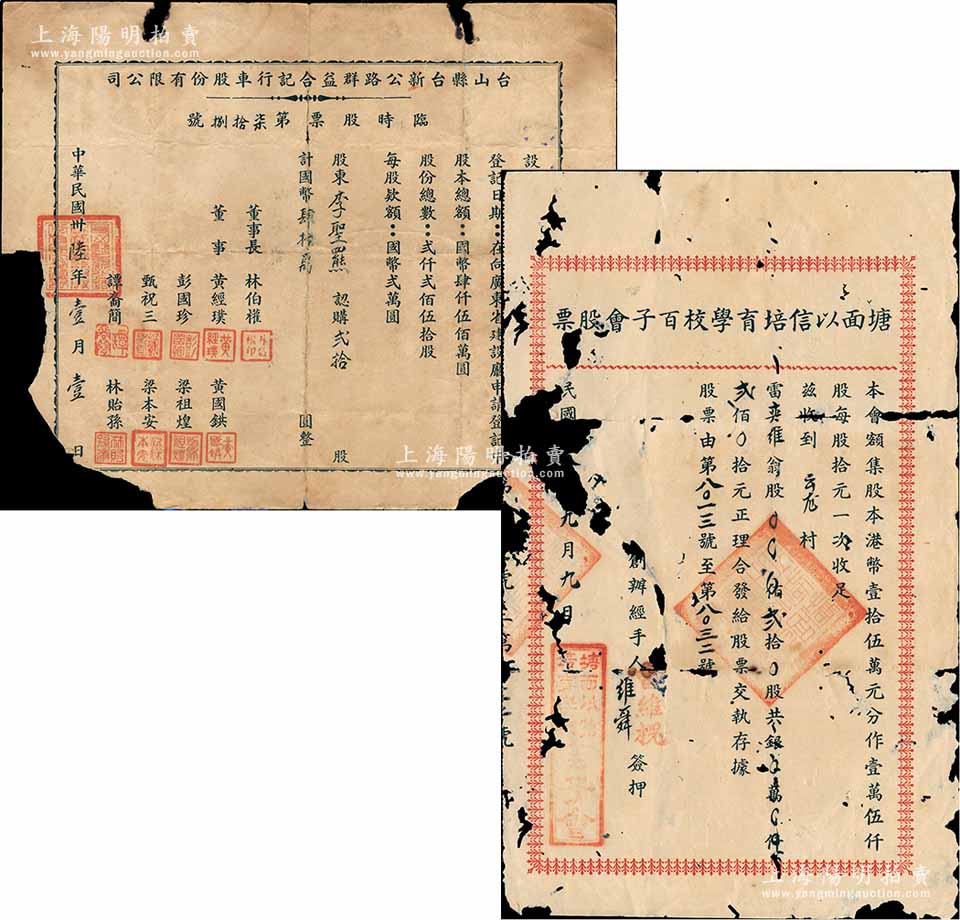 上海陽明拍賣
www.yangmingauction.com
台山縣台新公路群益合記行車股份有限公司
臨時股票第柒拾捌號
設
登記日期：在向廣東省建設廳申請登記中
股本總額：國幣肆仟伍佰萬圓
股份總數：弍仟弍佰伍拾股
每股欵額：國幣弍萬圓
股東李聖羆認購弍拾股
計國幣肆拾萬圓整
董事長 林伯權
董事 黃經璞 黃國鉷
彭國珍 梁祖煌
甄祝三 梁本安
譚裔簡 林貽孫
中華民國卅陸年壹月壹日
上海陽明拍賣
www.yangmingauction.com
塘面以信培育學校百子會股票
本會額集股本港幣壹拾伍萬元分作壹萬伍仟
股每股拾元一次收足
茲收到 村
雷奕維翁股 弍拾0股共銀
弍佰0拾元正理合發給股票交執存據
股票由第八0一三號至第八0三二號
創辦經手人 維舜 簽押
民國 九月九日
上海陽明拍賣
www.yangmingauction.com